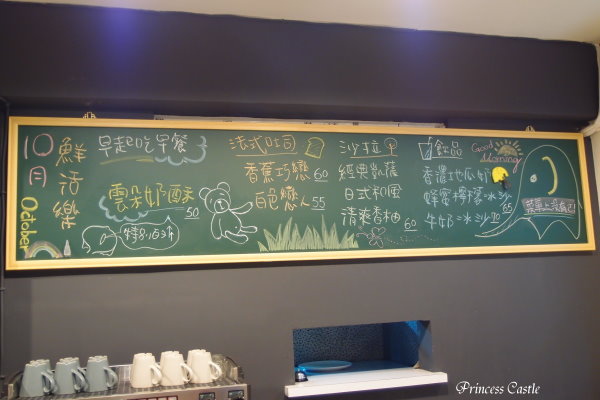 10月
October
鮮活樂
早起吃早餐
雲朵奶酪
50
法式吐司
香蕉巧戀 60
白色戀人 55
沙拉
經典凱薩
日式和風
清爽香柚
60
飲品
香濃地瓜奶
蜂蜜檸檬冰沙
65
牛奶冰沙 70
Good Morning
菜單上沒有己
Princess Castle